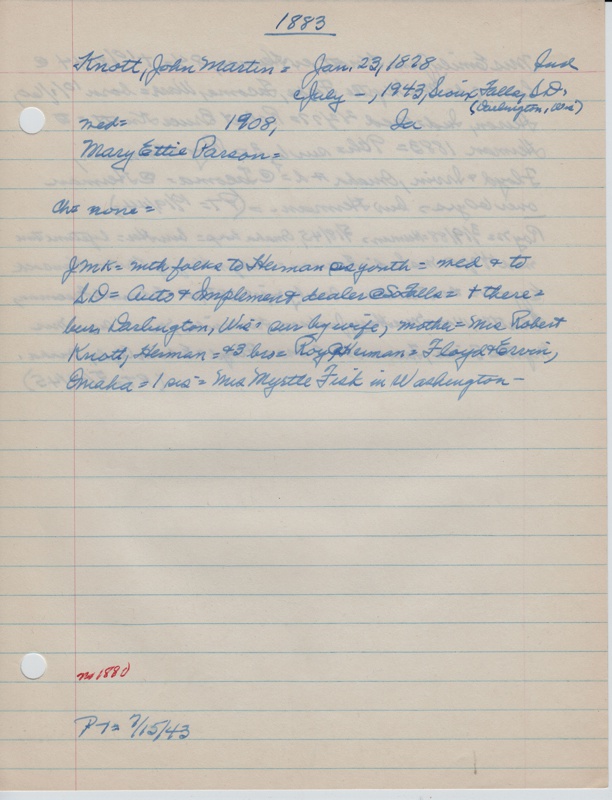 1883
Knott, John Martin = Jan. 23, 1828 Ind
c July -, 1943, Sioux Falls, S.D.
(Darlington, Wis)
med = 1908, Ia
Mary Ettie Parson =
Ch = none =
JMK = with folks to Herman as youth = med & to
SD = Auto & Implement dealer @ S Falls = + there =
bur, Darlington, Wis = sur by wife, mother = Mrs Robert
Knott, Herman = +3 bro = Roy Herman = Floyd & Ervin,
Omaha = 1 sis = Mrs Myrtle Fisk in Washington -
m 1880
P-T = 7/15/43